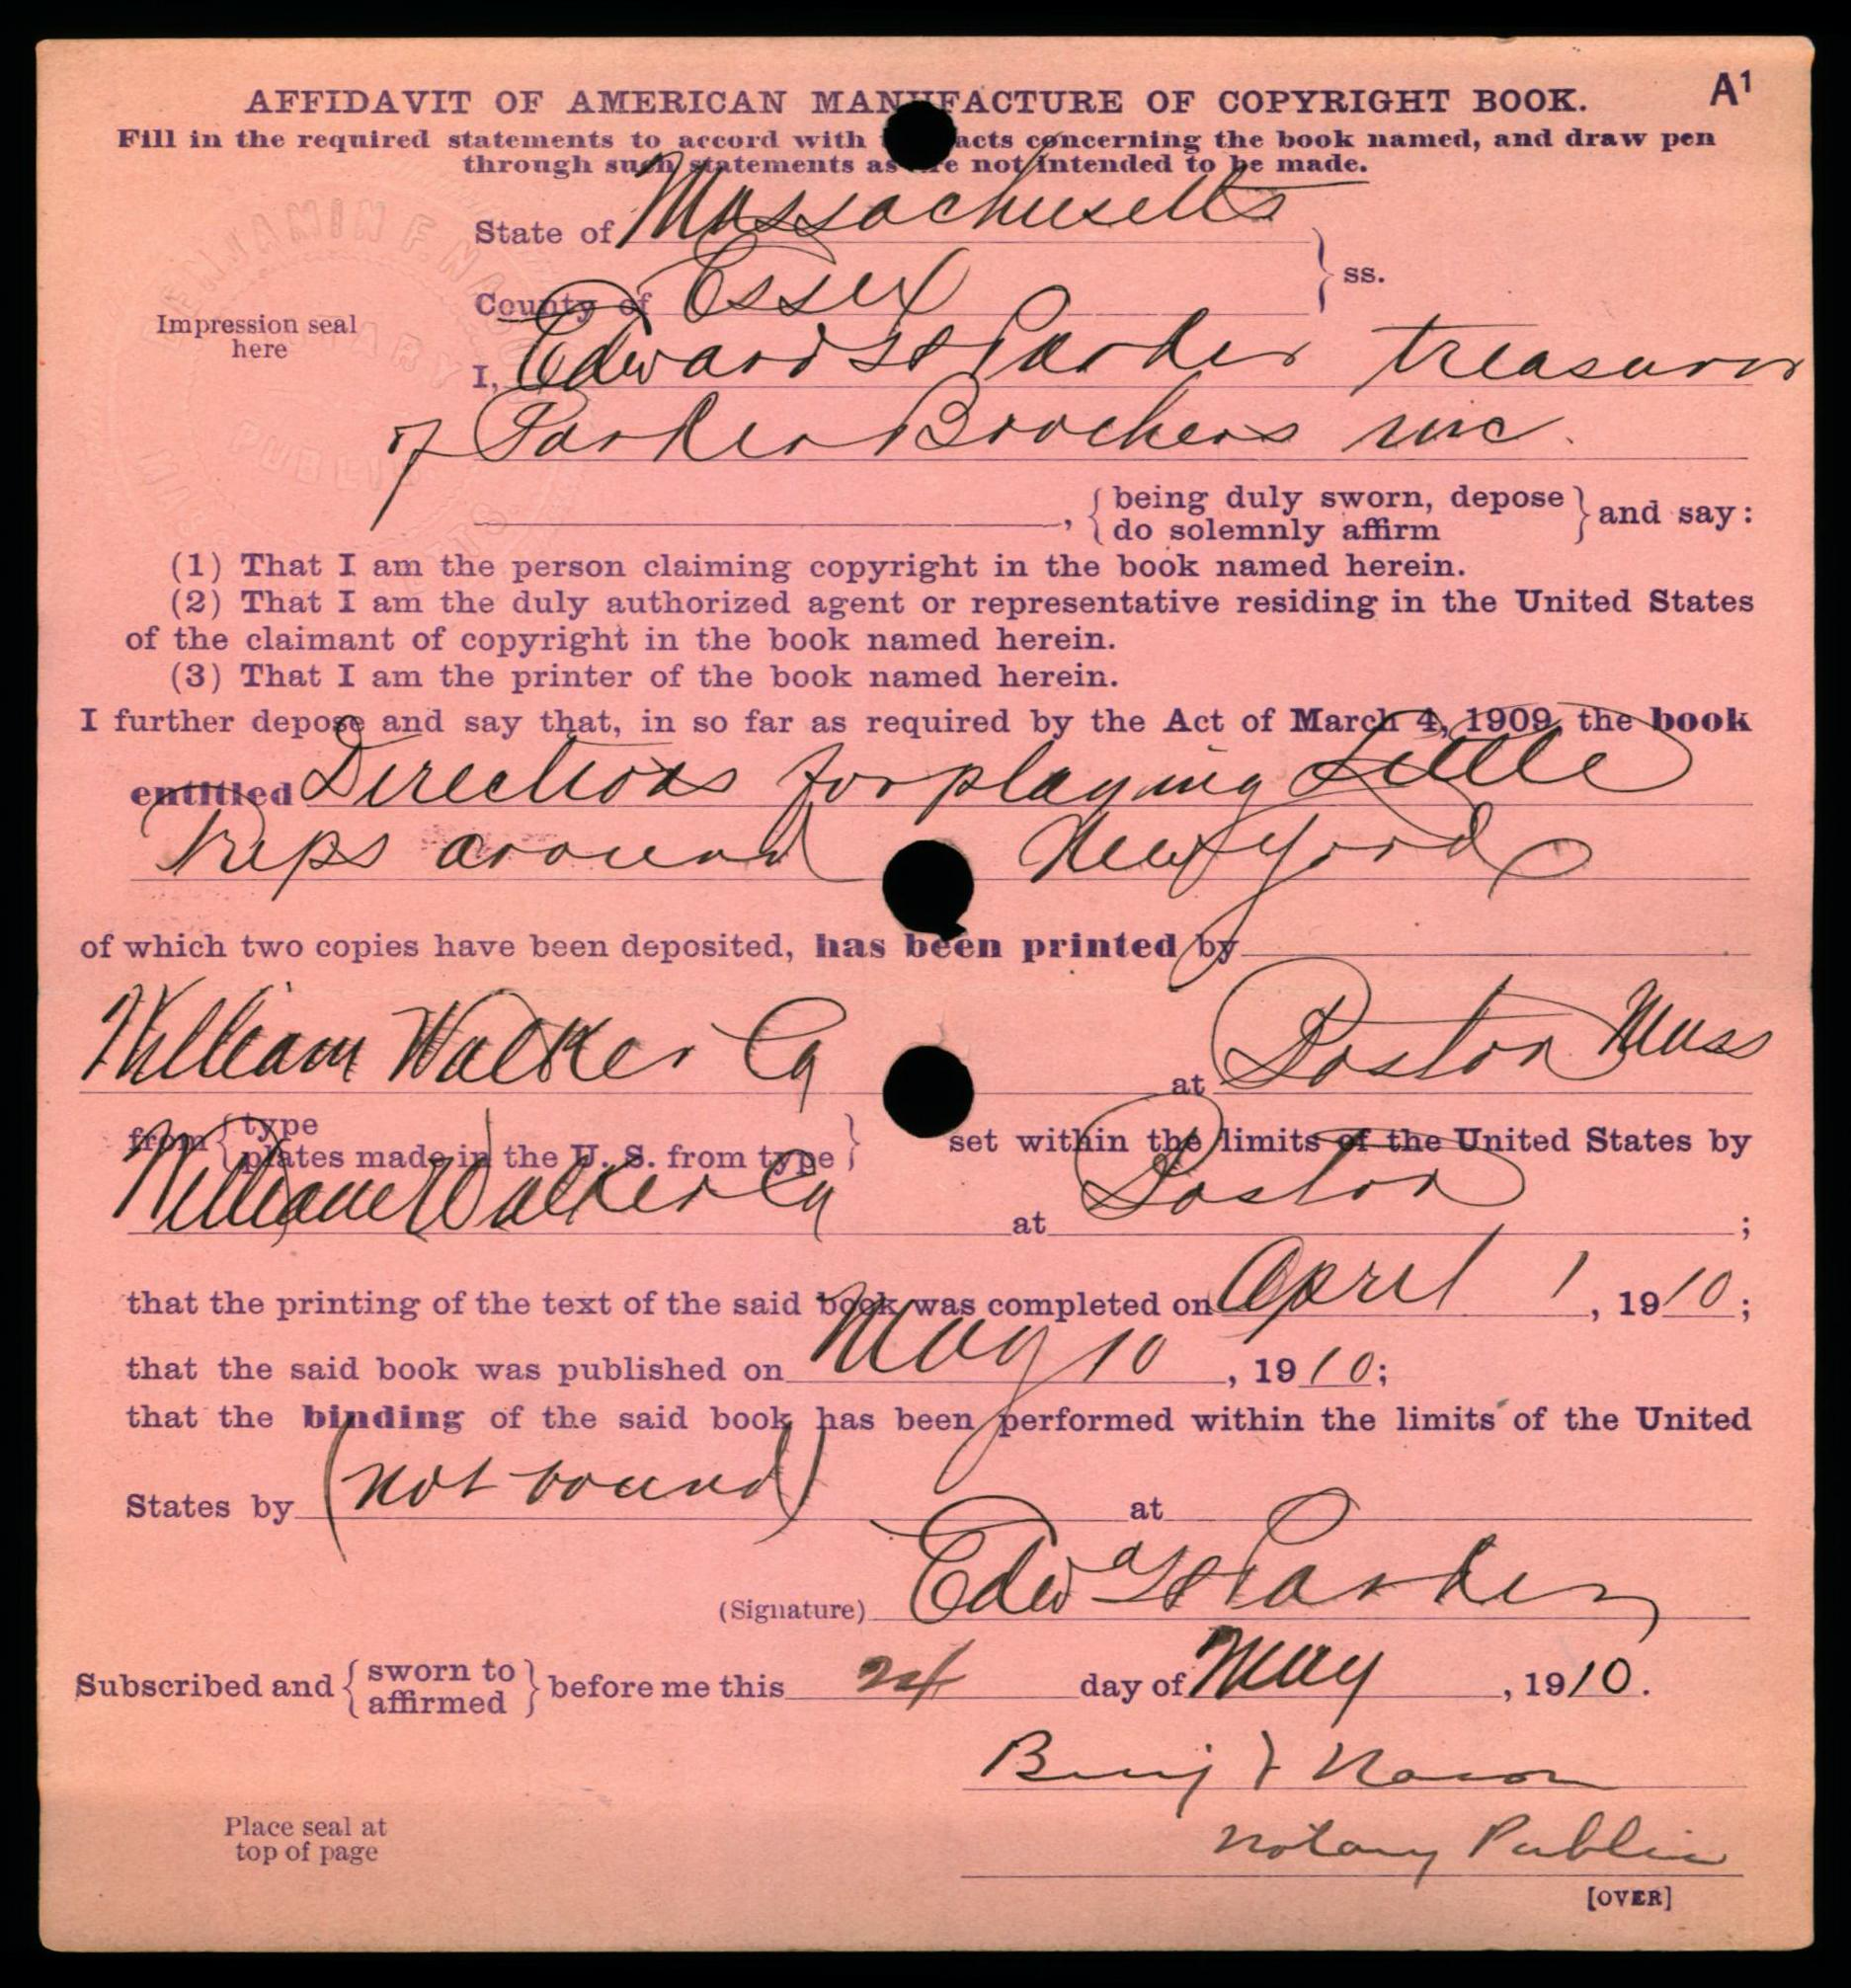 A¹
AFFIDAVIT OF AMERICAN MANUFACTURE OF COPYRIGHT BOOK.
Fill in the required statements to accord with the facts concerning the book named, and draw pen
through such statements as are not intended to be made.
State of Massachusetts
County of Essex
ss.
Impression seal
here
I, Edward H Parker treasurer
of Parker Brothers inc.
, { being duly sworn, depose
do solemnly affirm } and say:
(1) That I am the person claiming copyright in the book named herein.
(2) That I am the duly authorized agent or representative residing in the United States
of the claimant of copyright in the book named herein.
(3) That I am the printer of the book named herein.
I further depose and say that, in so far as required by the Act of March 4, 1909, the book
entitled Directions for playing Little
Trips around New York
of which two copies have been deposited, has been printed by
William Walker Co at Boston Mass
from { type
plates made in the U. S. from type } set within the limits of the United States by
William Walker Co at Boston ;
that the printing of the text of the said book was completed on April 1, 1910;
that the said book was published on May 10, 1910;
that the binding of the said book has been performed within the limits of the United
States by (not bound) at
(Signature) Edwd H Parker
Subscribed and { sworn to
affirmed } before me this 24 day of May, 1910.
Benj F Nason
Notary Public
Place seal at
top of page
[OVER]